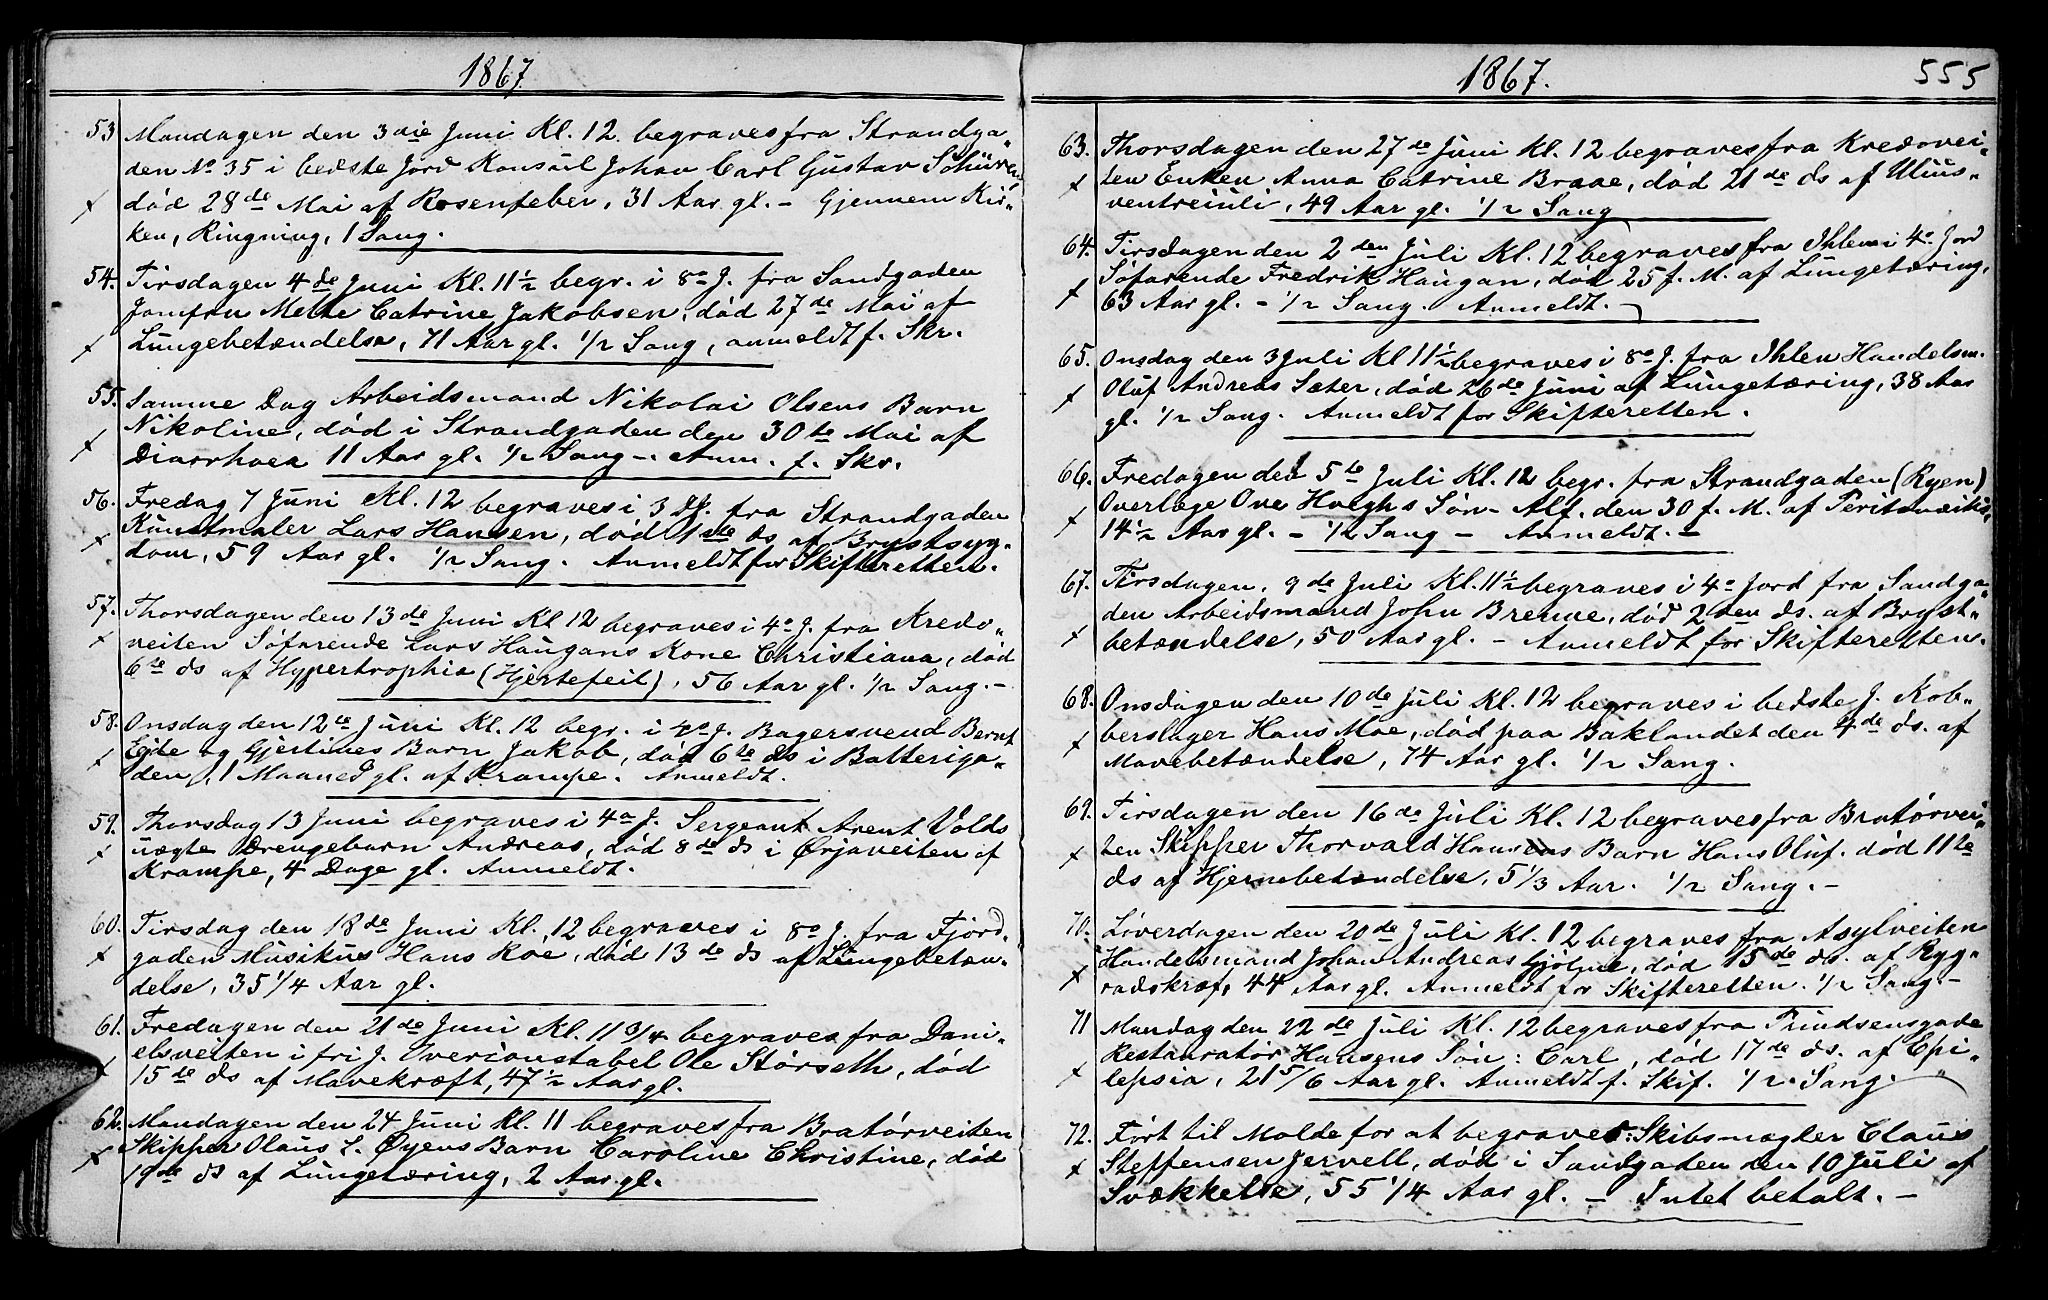 1867
53. Mandagen den 3die Juni Kl. 12. begraves fra Strandga-
den No 35 i bedste Jord Konsul Johan Carl Gustav Schüren,
død 28de Mai af Rosenfeber, 31 Aar gl. - Gjennem Kir-
ken, Ringning, 1 Sang.
54. Tirsdagen 4de Juni Kl. 11½ begr. i 8o J. fra Sandgaden
Jomfru Mette Catrine Jakobsen, død 27de Mai af
Lungebetændelse, 71 Aar gl. ½ Sang, anmeldt f. Skr.
55. Samme Dag Arbeidsmand Nikolai Olsens Barn
Nikoline, død i Strandgaden den 30te Mai af
Diarrhoea 11 Aar gl. ½ Sang -. Anm. f. Skr.
56. Fredag 7 Juni Kl. 12 begraves i 3 J. fra Strandgaden
Kunstmaler Lars Hansen, død 1ste ds af Brystsyg-
dom, 59 Aar gl. ½ Sang. Anmeldt for Skifteretten.
57. Thorsdagen den 13de Juni Kl 12 begraves i 4o J. fra Kredo-
veiten Søfarende Lars Haugans Kone Christiana, død
6te ds af Hypertrophia (Hjertefeil), 56 Aar gl. ½ Sang. -
58. Onsdag den 12te Juni Kl. 12 begr. i 4o J. Bagersvend Bernt
Eide og Gjertines Barn Jakob, død 6te ds i Batteriga-
den, 1 Maaned gl. af Krampe. Anmeldt.
59. Thorsdag 13 Juni begraves i 4a J. Sergeant Arent Volds
uægte Drengebarn Andreas, død 8de ds i Ørjaveiten af
Krampe, 4 Dage gl. Anmeldt.
60. Tirsdag den 18de Juni Kl. 12 begraves i 8o J. fra Fjord-
gaden Musikus Hans Roe, død 13de ds af Lungebetæn-
delse, 35 1/4 Aar gl.
61. Fredagen den 21de Juni Kl. 11 3/4 begraves fra Dani-
elsveiten i fri J. Overkonstabel Ole Størseth, død
15de ds af Mavekræft, 47½ Aar gl.
62. Mandagen den 24 Juni Kl. 11 begraves fra Bratørveiten
Skipper Olaus L. Øyens Barn Caroline Christine, død
19de ds af Lungetæring, 2 Aar gl.
1867.
555
63. Thorsdagen den 27de Juni Kl. 12 begraves fra Kredovei-
ten Enken Anna Catrine Braae, død 21de ds af
49 Aar gl. ½ Sang
64. Tirsdagen den 2den Juli Kl. 12 begraves fra Ihlen i 4o Jord
Søfarende Fredrik Haugan, død 25 f. M. af Lungetæring,
63 Aar gl. - ½ Sang. Anmeldt.
65. Onsdag den 3 Juli Kl 11½ begraves i 8o J. fra Ihlen Handelsm.
Oluf Andreas Sæter, død 26de Juni af Lungetæring, 38 Aar
gl. ½ Sang. Anmeldt for Skifteretten.
66. Fredagen den 5te Juli Kl. 12 begr. fra Strandgaden (Ryen)
Overlæge Ove Høeghs Søn - Alf. den 30 f. M. af Peritonæitis,
14½ Aar gl. - ½ Sang - Anmeldt. -
67. Tirsdagen, 9de Juli Kl. 11½ begraves i 4o Jord fra Sandga-
den Arbeidsmand John Brenne, død 2den ds. af Bryst-
betændelse, 50 Aar gl. - Anmeldt for Skifteretten.
68. Onsdagen den 10de Juli Kl. 12 begraves i bedste J. Kob-
berslager Hans Moe, død paa Baklandet den 4de ds. af
Mavebetændelse, 74 Aar gl. ½ Sang.
69. Tirsdagen den 16de Juli Kl. 12 begraves fra Bratørvei-
ten Skipper Thorvald Hansens Barn Hans Oluf. død 11te
ds af Hjernebetændelse, 5 1/3 Aar. ½ Sang. -
70. Løverdagen den 20de Juli Kl. 12 begraves fra Asylveiten
Handelsmand Johan Andreas Gjølme, død 15de ds. af Ryg-
radskræf, 44 Aar gl. Anmeldt for Skifteretten. ½ Sang. -
71 Mandag den 22de Juli Kl. 12 begraves fra Prindsensgade
Restauratør Hansens Søn: Carl, død 17de ds. af Epi-
lepsia, 21 5/6 Aar gl. Anmeldt f. Skif. ½ Sang.
72. Ført til Molde for at begraves: Skibsmægler Claus
Steffensen Jervell, død i Sandgaden den 10 Juli af
Svækkelse, 55 1/4 Aar gl. - Intet betalt. -